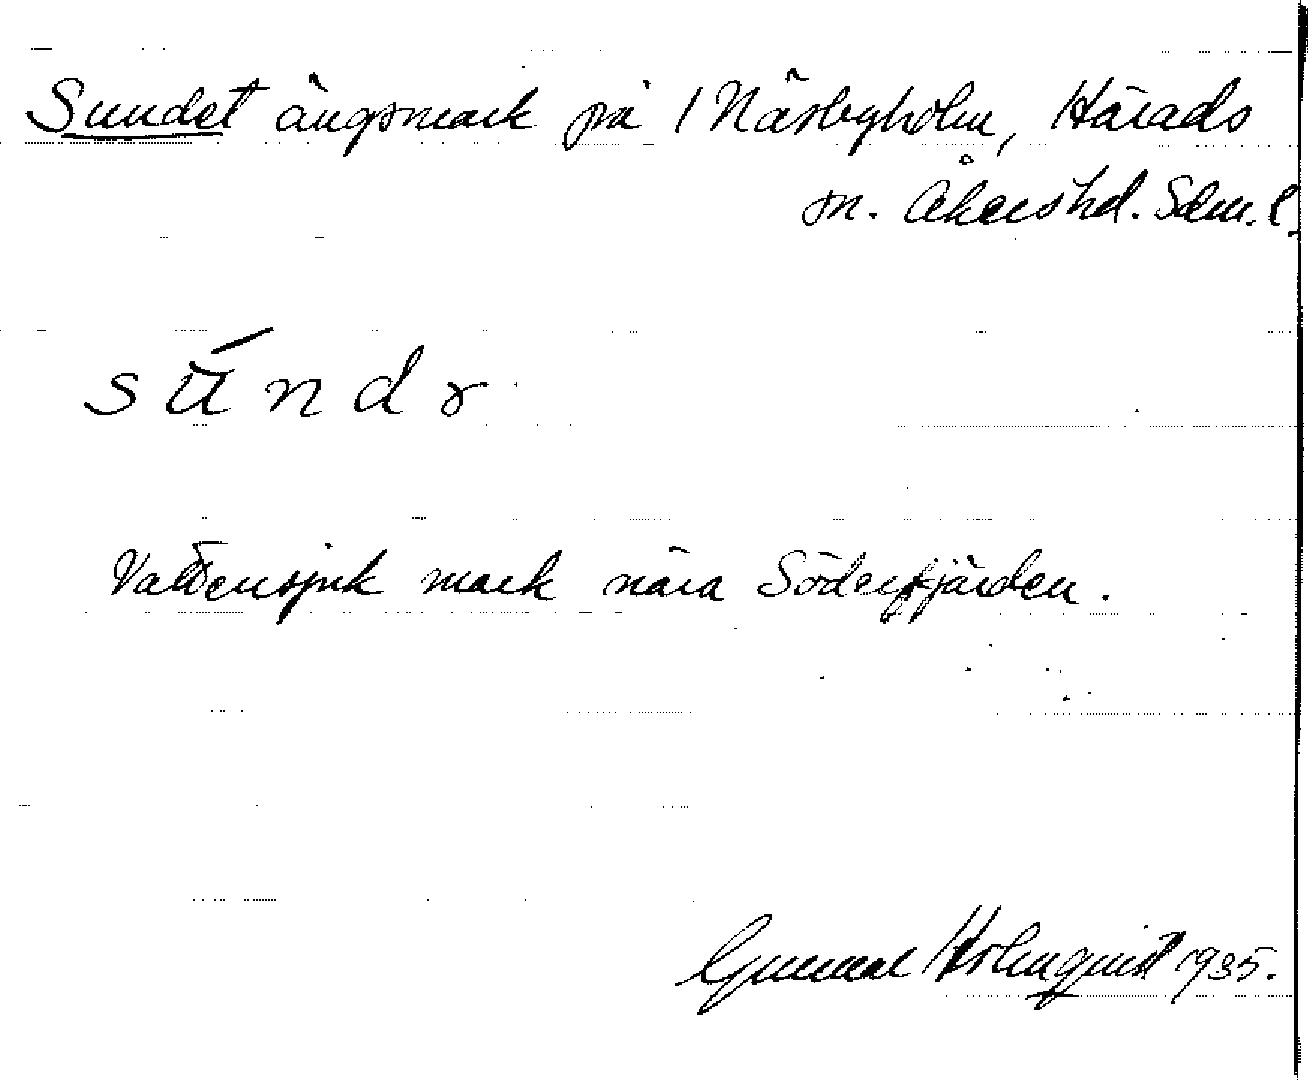 Sundet ängsmark på 1 Näsbyholm, Härads
sn. Åkers hd. Sdm. l.
sú̄ndr
Vattensjuk mark nära Söderfjärden.
Gunnar Holmquist 1935.